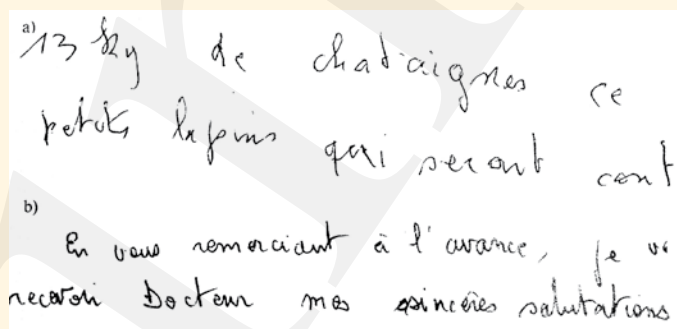 a)
13 kg de chataignes ce
petits lapins qui seront cont
b)
En vous remerciant à l'avance, je v
recevoir Docteur mes sincères salutations